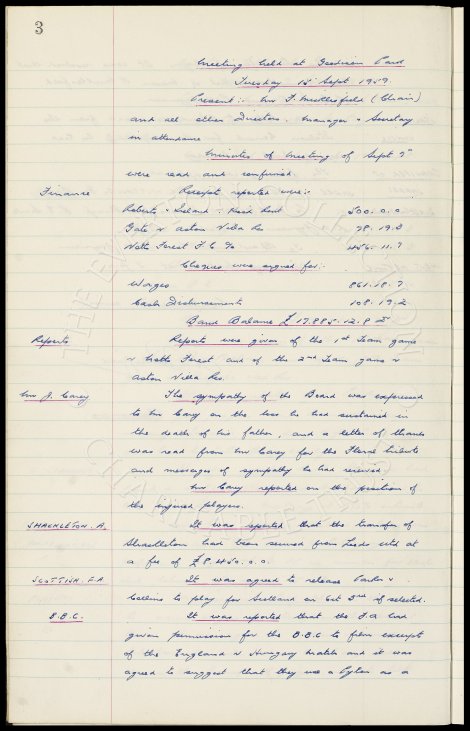 3
Meeting held at Goodison Park
Tuesday 15 Sept 1959.
Present :- Mr F. Micklesfield (Chair)
and all other Directors. Manager & Secretary
in attendance
Minutes of Meeting of Sept 7th
were read and confirmed
Finance Receipts reported were :-
Roberts & Ireland. Rent 500. 0. 0
Gate v Aston Villa Res 78. 19. 3
Notts Forest F C % 456. 11. 7
Cheques were signed for :-
Wages 861. 18. 7
Cash Disbursements 108. 19. 2
Bank Balance £ 17.885. 12. 8
Reports Reports were given of the 1st Team game
v Notts Forest and of the 2nd Team game v
Aston Villa Res.
Mr J. Carey The sympathy of the Board was expressed
to Mr Carey on the loss he had sustained in
the death of his father, and a letter of thanks
was read from Mr Carey for the floral tribute
and messages of sympathy he had received
Mr Carey reported on the position of
the injured players.
SHACKLETON. A. It was reported that the transfer of
Shackleton had been secured from Leeds Utd at
a fee of £8.450. 0. 0.
SCOTTISH. F.A It was agreed to release Parker &
Collins to play for Scotland on Oct 3rd if selected.
B.B.C. It was reported that the F.A had
given permission for the B.B.C to film excerpt
of the England v Hungary match and it was
agreed to suggest that they use a Pylon as a